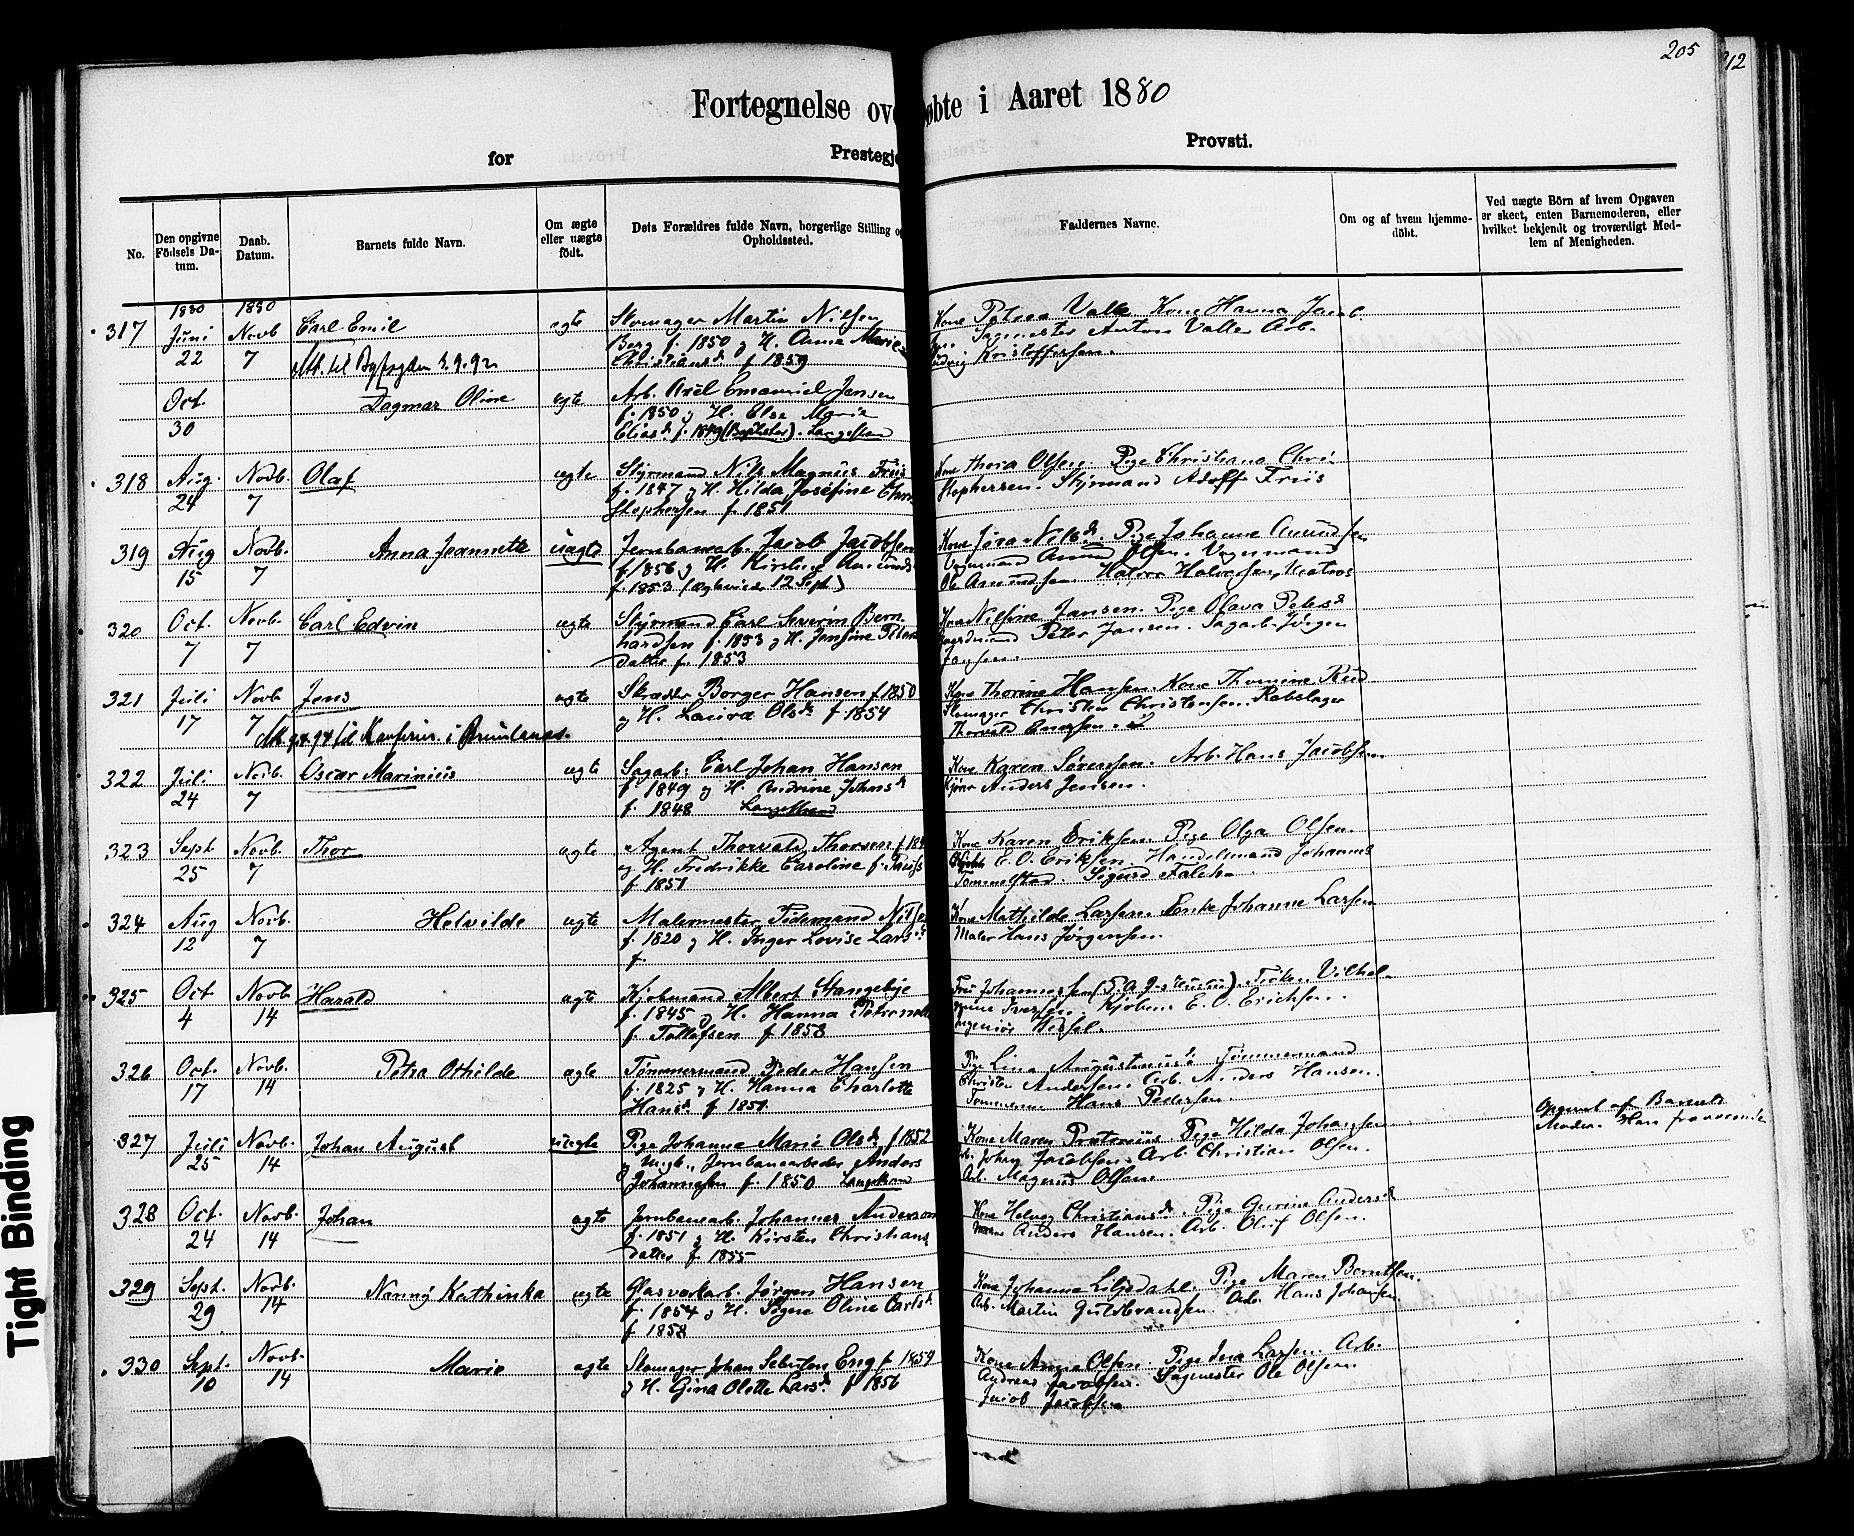 205
12
Fortegnelse ov øbte i Aaret 1880
for Prestegje Provsti.
No.
Den opgivne Födsels Da-tum.
Daab. Datum.
Barnets fulde Navn.
Om ægte eller uægte födt.
Dets Forældres fulde Navn, borgerlige Stilling o Opholdssted.
Faddernes Navne.
Om og af hvem hjemme-döbt.
Ved uægte Börn af hvem Opgaven er skeet, enten Barnemoderen, eller hvilket bekjendt og troværdigt Med-lem af Menigheden.
1880 1880
317 Juni 22 Novb 7 Carl Emil ægte Skomager Martin Nilsen
Berg f. 1850 g H. Anna Marie
Christiansd. f 1859
Kone Petrea Valle Kone Hanna Jacob
Sagmester Anton Valle Arb.
Ludvig Kristoffersen.
Att. til Byfogden
Oct. 30 Dagmar Oline ægte Arb. Axel Emanuel Jensen
f. 1850 g H. Else Marie
Eliasd. f. 1849 (Baptister). Langestrand
318 Aug. 24 Novb. 7 Olaf ægte Styrmand Nils Magnus Friis
f. 1847 g H. Hilda Josefine Chri
stophersen f. 1851
Kone Thora Olsen. Pige Christiane Chri
stophersen. Styrmand Adolf Friis
319 Aug 15 Novb. 7 Anna Jeannette uægte Jernbanearb. Jacob Jacobsen
f. 1856 g H. Kirstine Amunds
f. 1853 (Ægteviede 12 Sept)
Pige Johanne Amundsen
Amund Olsen.
Ole Amundsen. Halvor Halvorsen, Matros
320 Oct. 7 Novb. 7 Carl Edvin ægte Styrmand Carl Severin Bern
hardsen f. 1853 g H. Jensine
datter f. 1853
Kone Nilsine Jansen. Pige Olava Petersd
Peter Jansen. Sagarb. Jörgen
Jansen.
321 Juli 17 Novb 7 Jens ægte Skrædder Borger Hansen f 1850
g H. Laura Olsd. f 1854
Kone Thorine Hansen. Kone Thomine Rud
Skomager Christen Christensen. Rebslager
Thorvald
322 Juli 24 Novb. 7 Oscar Marinius ægte Sagarb. Carl Johan Hansen
f. 1849 g H. Andrine Johnsd
f. 1848 Langestrand
Kone Karen Sörensen. Arb. Hans Jacobsen.
Anders Jensen.
323 Sept 25 Novb. 7 Thor ægte Agent Thorvald Thorsen f 18
g H. Fredrikke Caroline f.
f 1851
Kone Karen Eriksen. Pige Olga Olsen.
E. O. Eriksen. Handelsmand Johannes
Tommelstad. Sigurd Falch
324 Aug 12 Novb. 7 Helvilde ægte Malermester Tidemand Nilsen
f. 1820 g H. Inger Lovise Larsd
f.
Kone Mathilde Larsen. Enke Johanne Larsen
Maler Hans Jörgensen.
325 Oct 4 Novb 14 Harald ægte Kjöbmand Albert Stangebye
f. 1845 g H. Hanna Petronelle
f. Tollefsen f 1858
Fru Johannessen Fröken Vilhel-
mine Iversen. Kjöbm. E. O. Erichsen.
Ingeniör
326 Oct. 17 Novb. 14 Petra Othilde ægte Tömmermand Peder Hansen
f. 1825 g H. Hanna Charlotte
Hansd. f 1851
Pige Lina Augustinusd Tömmermand
Christen Andersen. Arb. Anders Hansen.
Hans Pedersen.
327 Juli 25 Novb. 14 Johan August uægte Pige Johanne Marie Olsd. f 1852
g Ungk. Jernbanearbeider Anders
Johannesen f. 1850 Langestrand
Kone Maren Pige Hilda Johansen
Arb. Johan Jacobsen. Arb. Christian Olsen.
Arb. Magnus Olsen.
Opgivet af Barnets
Moder. Han fraværende
328 Oct. 24 Novb. 14 Johan ægte Jernbanearb. Johannes Anderson
f. 1851 g H. Kirsten Christians
datter f. 1855
Kone Helvig Christiansd. Pige Gurine Andersd
Anders Hansen. Arb. Oluf Olsen.
329 Sept. 29 Novb. 14 Nanny Kathinka ægte Glasværkarb. Jörgen Hansen
f 1854 g H. Signe Oline Carlsd
f 1858
Kone Johanne Liljedahl. Pige Maren Berntsen.
Arb. Martin Guldbrandsen. Arb. Hans Johansen.
330 Sept. 10 Novb. 14 Marie ægte Skomager Johan Eng f 1859
g H. Gina Olette Larsd. f 1856
Kone Anna Olsen. Pige Larsen. Arb.
Andreas Jacobsen. Sagmester Ole Olsen.
Jacob Jacobsen
Tight Binding